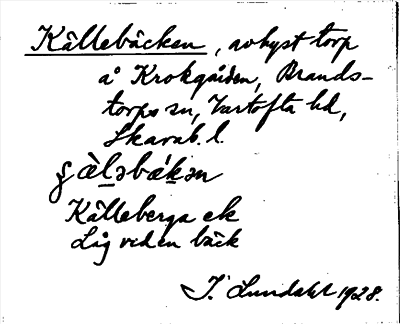 Källebäcken, avhyst torp
å Krokgården, Brands-
torps sn, Vartofta hd,
Skarab. l.
ʂ ä̀l̠əbäḱ̠ən
Källeberga ek
Låg vid en bäck
I. Lundahl 1928.